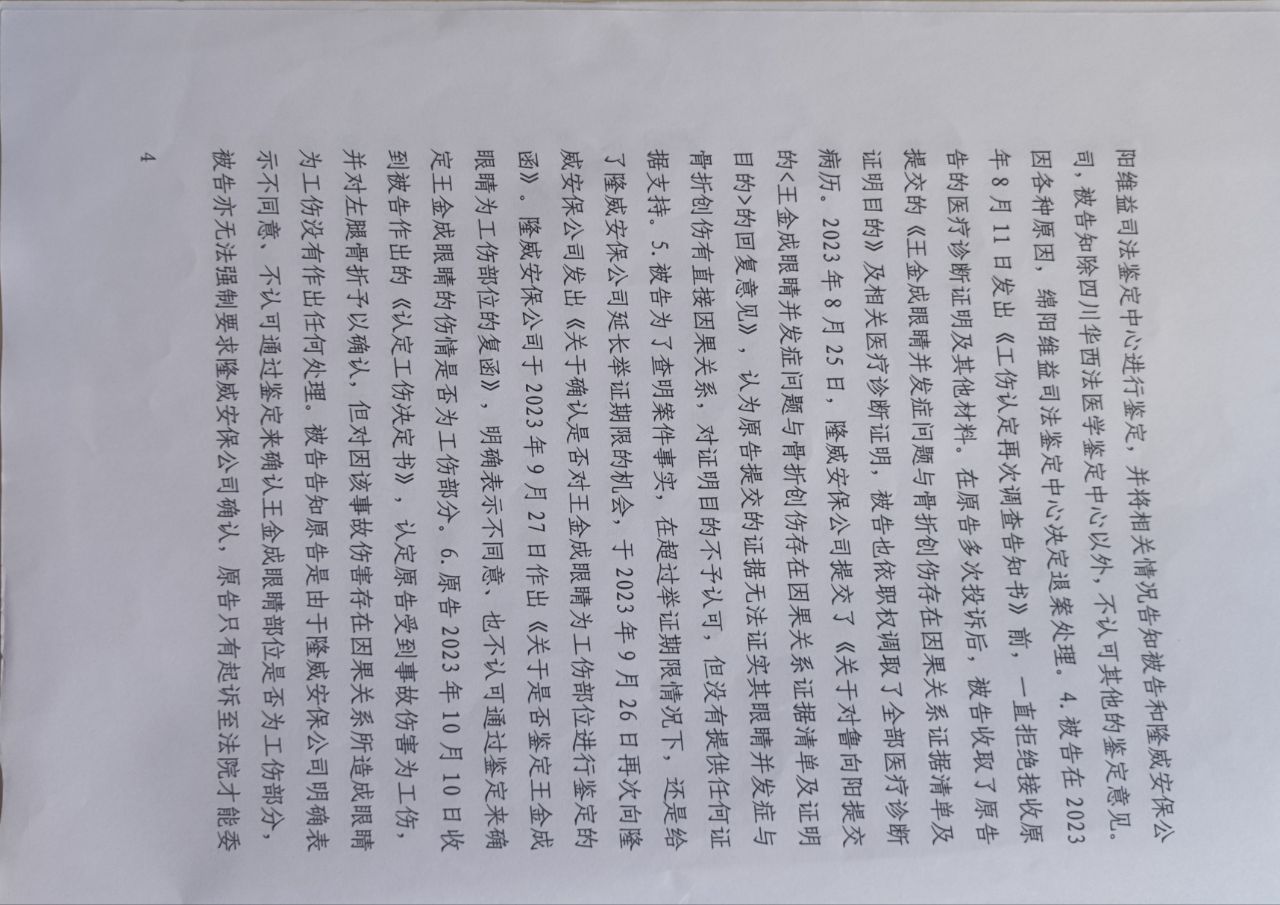 阳维益司法鉴定中心进行鉴定，并将相关情况告知被告和隆威安保公
司，被告知除四川华西法医学鉴定中心以外，不认可其他的鉴定意见。
因各种原因，绵阳维益司法鉴定中心决定退案处理。4.被告在 2023
年 8 月 11 日发出《工伤认定再次调查告知书》前，一直拒绝接收原
告的医疗诊断证明及其他材料。在原告多次投诉后，被告收取了原告
提交的《王金成眼睛并发症问题与骨折创伤存在因果关系证据清单及
证明目的》及相关医疗诊断证明，被告也依职权调取了全部医疗诊断
病历。2023 年 8 月 25 日，隆威安保公司提交了《关于对鲁向阳提交
的<王金成眼睛并发症问题与骨折创伤存在因果关系证据清单及证明
目的>的回复意见》，认为原告提交的证据无法证实其眼睛并发症与
骨折创伤有直接因果关系，对证明目的不予认可，但没有提供任何证
据支持。5.被告为了查明案件事实，在超过举证期限情况下，还是给
了隆威安保公司延长举证期限的机会，于 2023 年 9 月 26 日再次向隆
威安保公司发出《关于确认是否对王金成眼睛为工伤部位进行鉴定的
函》。隆威安保公司于 2023 年 9 月 27 日作出《关于是否鉴定王金成
眼睛为工伤部位的复函》，明确表示不同意、也不认可通过鉴定来确
定王金成眼睛的伤情是否为工伤部分。6.原告 2023 年 10 月 10 日收
到被告作出的《认定工伤决定书》，认定原告受到事故伤害为工伤，
并对左腿骨折予以确认，但对因该事故伤害存在因果关系所造成眼睛
为工伤没有作出任何处理。被告告知原告是由于隆威安保公司明确表
示不同意、不认可通过鉴定来确认王金成眼睛部位是否为工伤部分，
被告亦无法强制要求隆威安保公司确认，原告只有起诉至法院才能委
4